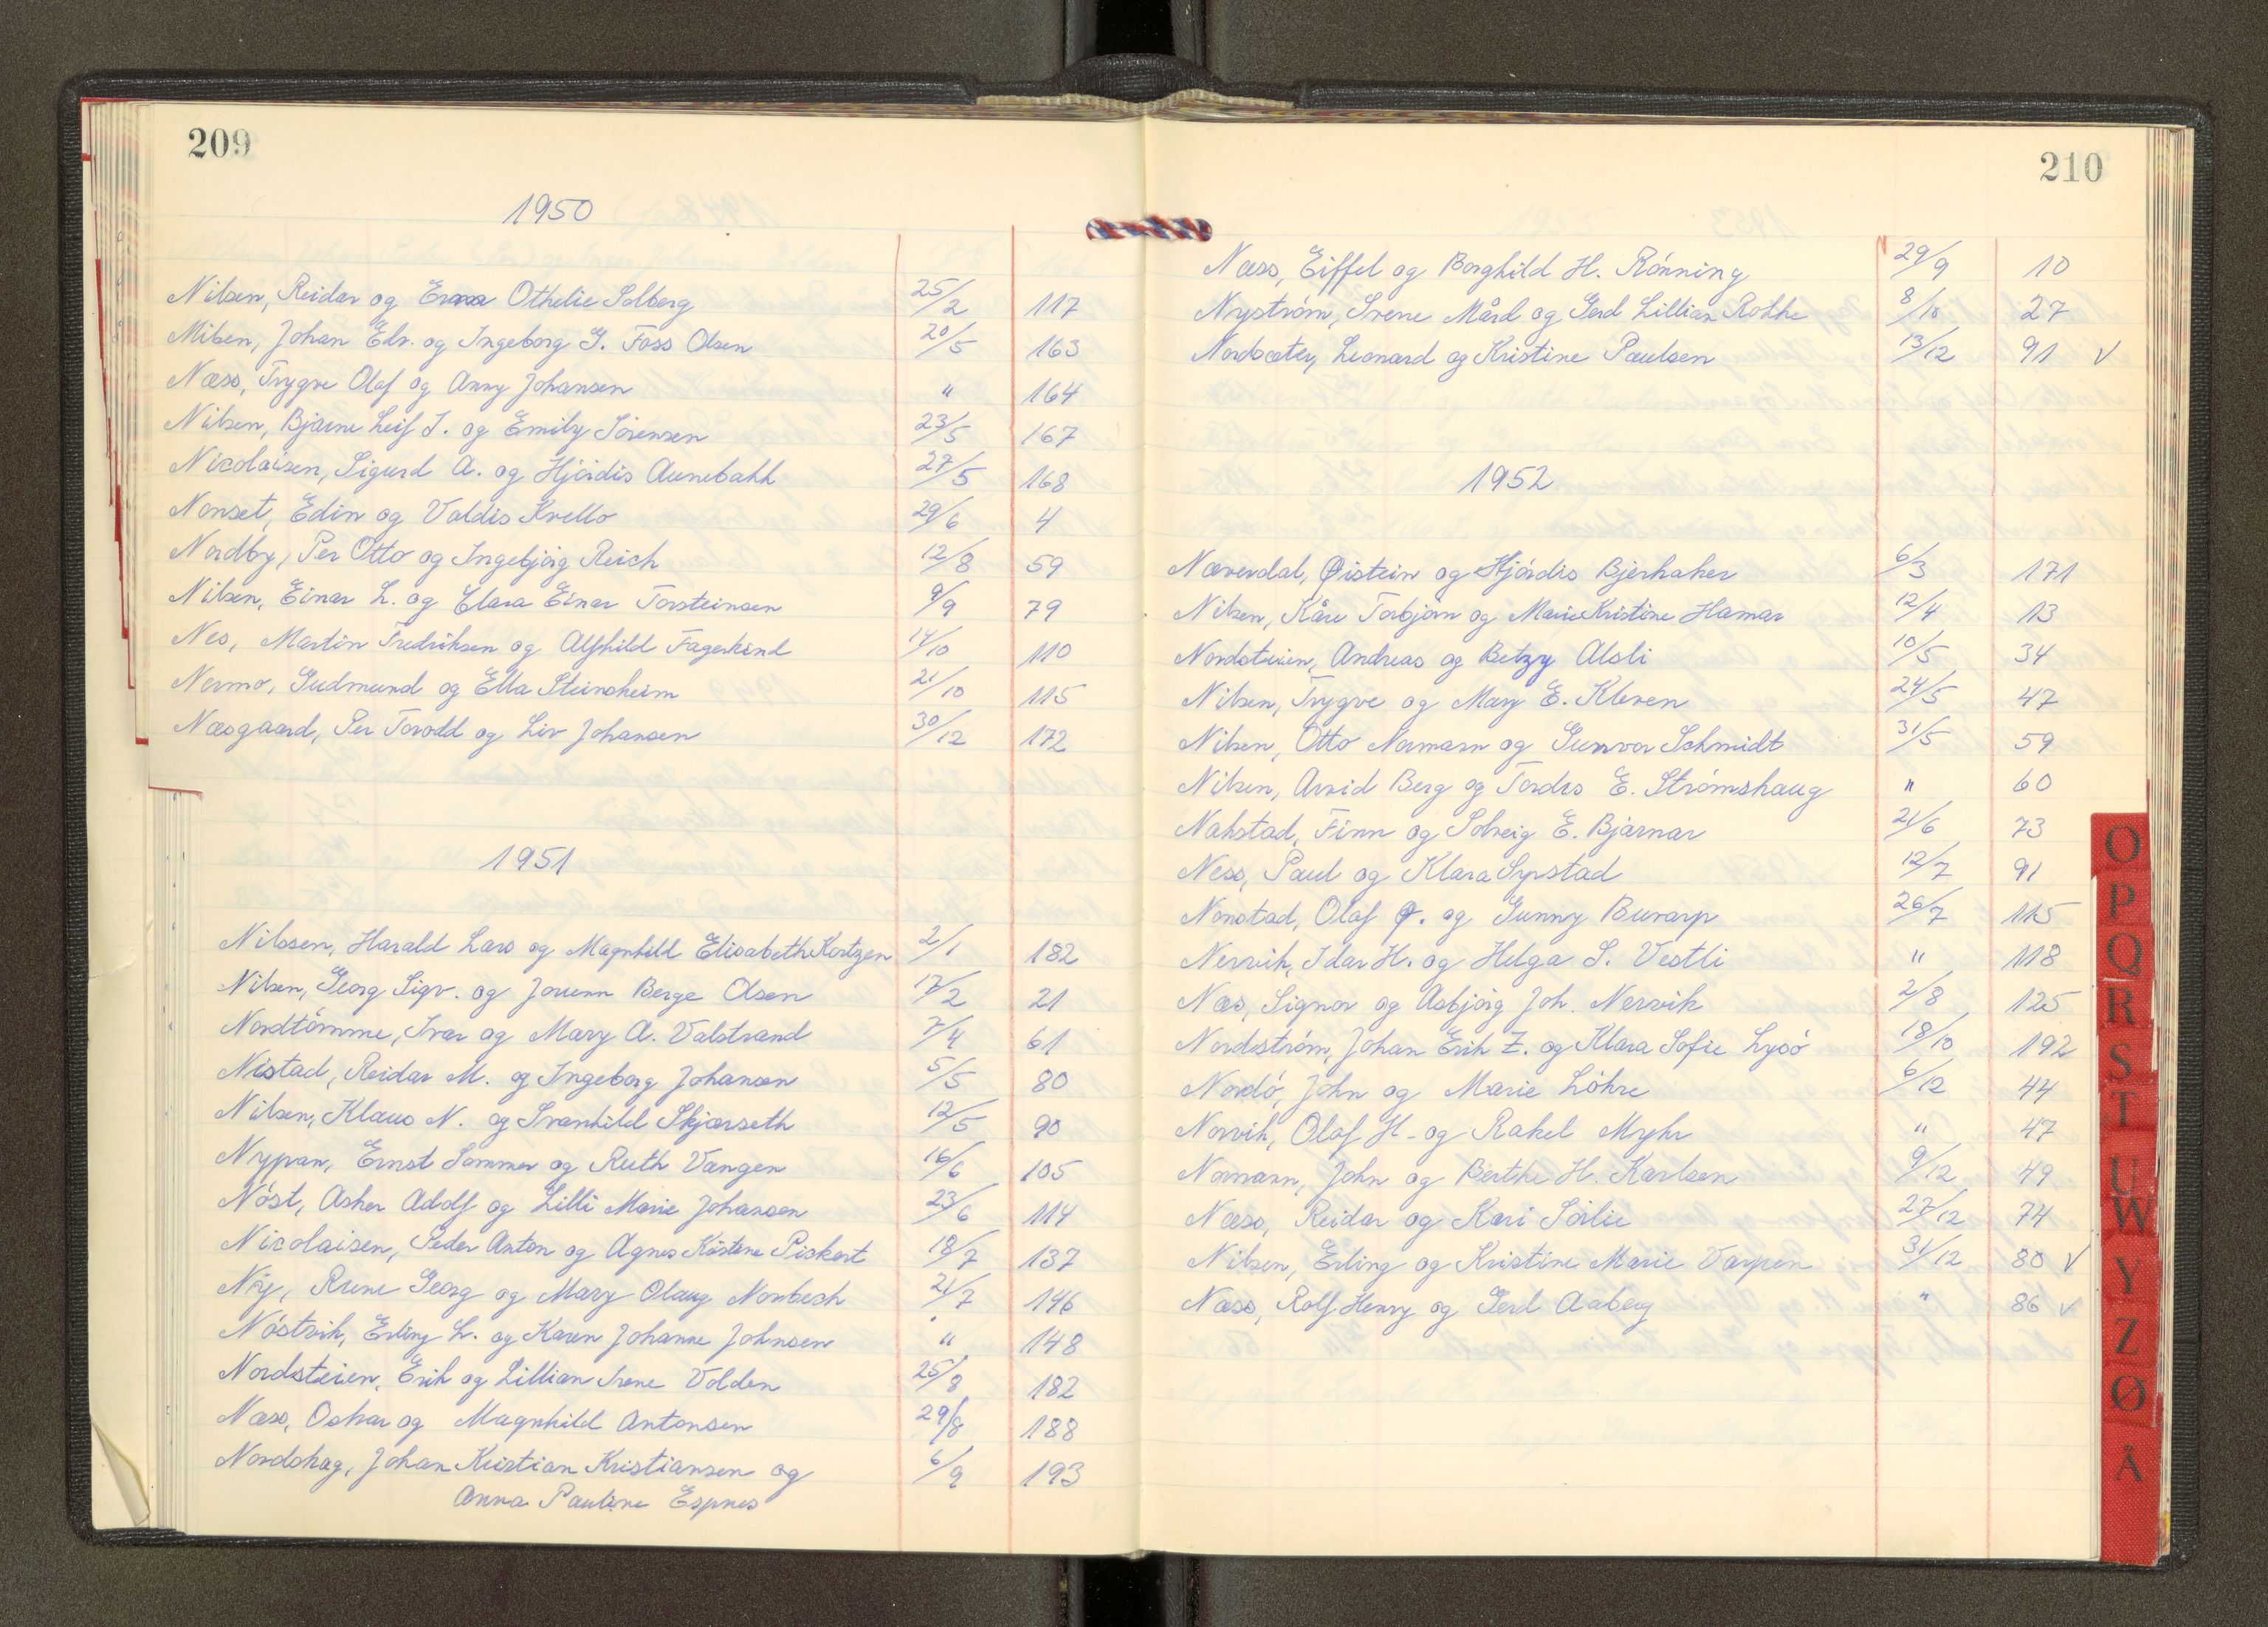 209
1950
Nilsen, Reidar og Erna Othelie Solberg 25/2 117
Nilsen, Johan Edv. og Ingeborg G. Foss Olsen 20/5 163
Næss, Trygve Olaf og Anny Johansen " 164
Nilsen, Bjarne Leif J. og Emily Sørensen 23/5 167
Nicolaisen, Sigurd A. og Hjørdis Aunebakk 27/5 168
Nonset, Edin og Valdis Krello 29/6 4
Nordby, Per Otto og Ingebjørg Reich 12/8 59
Nilsen, Einar L. og Clara Einar Torsteinsen 9/9 79
Nes, Martin Fredriksen og Alfhild Fagerhend 14/10 110
Nermo, Gudmund og Ella Steinsheim 21/10 115
Næsgaard, Per Torodd og Liv Johansen 30/12 172
1951
Nilssen, Harald Lars og Magnhild Elisabeth Kortgen 2/1 182
Nilsen, Georg Sigv. og Jorunn Berge Olsen 17/2 21
Nordtømme, Ivar og Mary A. Valstrand 7/4 61
Nistad, Reidar M. og Ingeborg Johansen 5/5 80
Nilsen, Klaus N. og Svanhild Skjærseth 12/5 90
Nypan, Ernst Sommer og Ruth Vangen 16/6 105
Nøst, Asker Adolf og Lilli Marie Johansen 23/6 114
Nicolaisen, Peder Anton og Agnes Kristine Pickert 18/7 137
Ny, Rune Georg og Mary Olaug Norbech 21/7 146
Nøstvik, Erling L. og Karen Johanne Johnsen " 148
Nordsteien, Erik og Lillian Irene Volden 25/8 182
Næss, Oskar og Magnhild Antonsen 29/8 188
Nordshag, Johan Kristian Kristiansen og 6/9 193
Anna Pauline Espnes
210
Næss, Eiffel og Borghild H. Rønning 29/9 10
Nystrøm, Svene Mård og Gerd Lillian Rothe 8/10 27
Nordsæter, Leonard og Kristine Paulsen 13/12 91 V
1952
Næverdal, Øistein og Hjørdis Bjerkaker 6/3 171
Nilsen, Kåre Torbjørn og Marie Kristine Hamar 12/4 13
Nordsteien, Andreas og Betzy Alsli 10/5 34
Nilsen, Trygve og Mary E. Kleven 24/5 47
Nilsen, Otto Normann og Gunvor Schmidt 31/5 59
Nilsen, Arvid Berg og Tordis E. Strømshaug " 60
Nakstad, Finn og Solveig E. Bjørnar 21/6 73
Ness, Paul og Klara Syrstad 12/7 91
Nonstad, Olaf O. og Gunny Burarp 26/7 115
Nervik, Idar H. og Helga S. Vestli " 118
Næs, Signor og Asbjørg Joh. Nervik 2/8 125
Nordstrøm, Johan Erik Z. og Klara Sofie Lysø 18/10 192
Nordø, John og Marie Løhre 6/12 44
Norvik, Olaf H. og Rakel Myhr " 47
Normann, John og Berthe H. Karlsen 9/12 49
Næss, Reidar og Kari Sørlie 27/12 74
Nilsen, Erling og Kristine Marie Varpen 31/12 80 V
Næss, Rolf Henry og Gerd Aaberg " 86 V
O
P
Q
R
S
T
U
W
Y
Z
Ø
Å